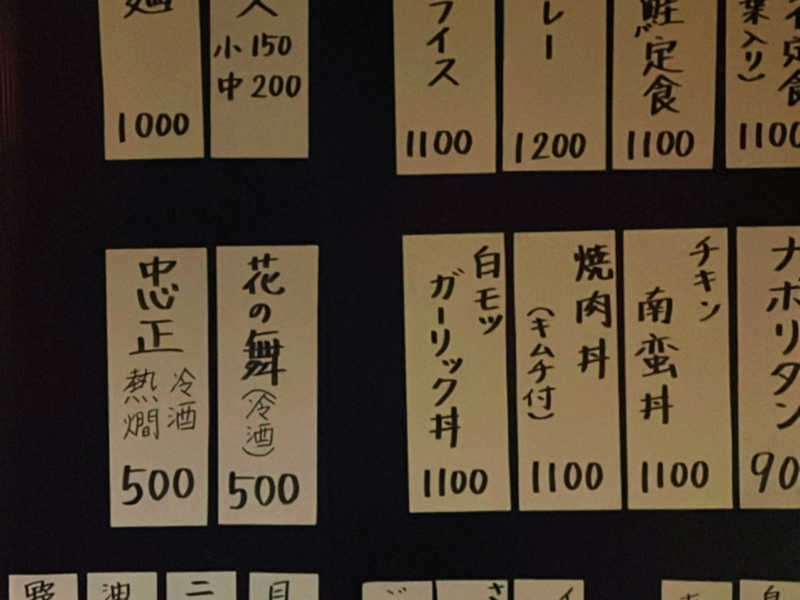 小 150
中 200
1000
フイス
1100
レー
1200
鮭定食
1100
定食
葉入り)
1100
忠正
冷酒
熱燗
500
花の舞
(冷酒)
500
白モツ
ガーリック丼
1100
焼肉丼
(キムチ付)
1100
チキン
南蛮丼
1100
ナポリタン
90